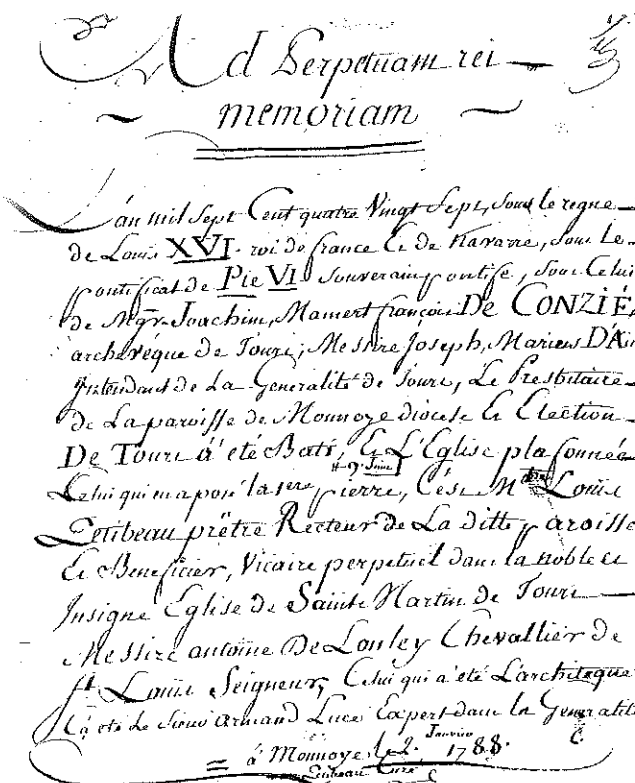 Ad Perpetuam rei
memoriam
L'an mil Sept Cent quatre Vingt Sept, Sous le regne
de Louis XVI. roi de france Et de Navarre, Sous Le
pontificat de Pie VI Souverain pontife, Sous Celui
de Mgr. Joachim, Mamert françois DE CONZIÉ,
archevéque de Tours, Messire Joseph, Mariens D'Ai
Intendant de La Generalité de Tours, Le Presbitaire
de La paroisse de Monnoye diocese Et Election
De Tours à été Bati, Et L'Eglise plafonnée
Celui qui en a posé la 1ere pierre, C'ést Mtre Louis
Petibeau prêtre Recteur de La ditte paroisse
Et Beneficier, Vicaire perpetuel dans la noble et
Insigne Eglise de Sainte Martin de Tours
Messire antoine De Lonley Chevallier de
St. Louis Seigneur, Celui qui a été L'architeque
à été Le Sieur armand Luce Expert dans la Generalité
à Monnoye, le 2. Janvier 1788.
Petibeau Curé